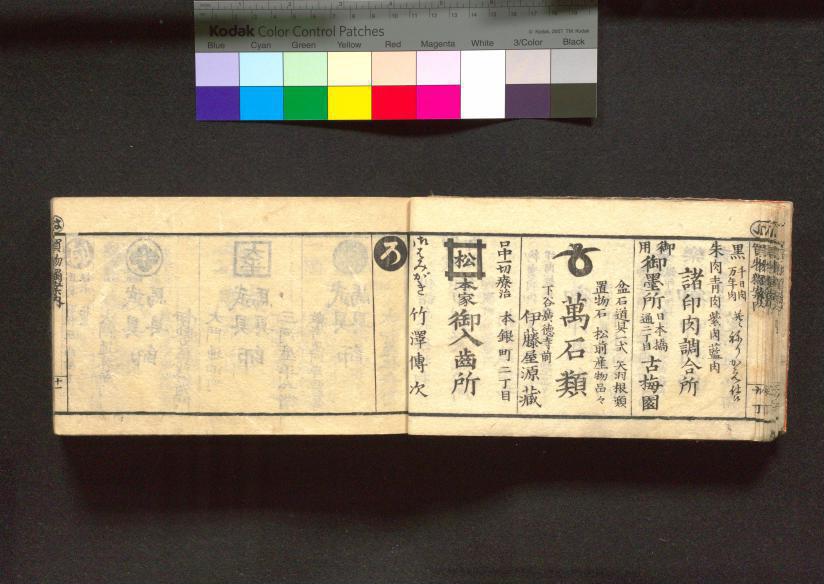 Kodak Color Control Patches
© Kodak, 2007 TM: Kodak
Blue Cyan Green Yellow Red Magenta White 3/Color Black
黒 千日肉
万年肉
朱肉青肉紫肉藍肉
諸印肉調合所
御用
御墨所 日本橋
通二丁目 古梅園
盆石道具一式 矢羽根類
置物石 松前産物品々
萬石類
下谷廣徳寺前
伊藤屋源藏
口中一切療治 本銀町二丁目
松 本家御入齒所
御はみがき 竹澤傳次
ろ
は 買物獨案内
十一